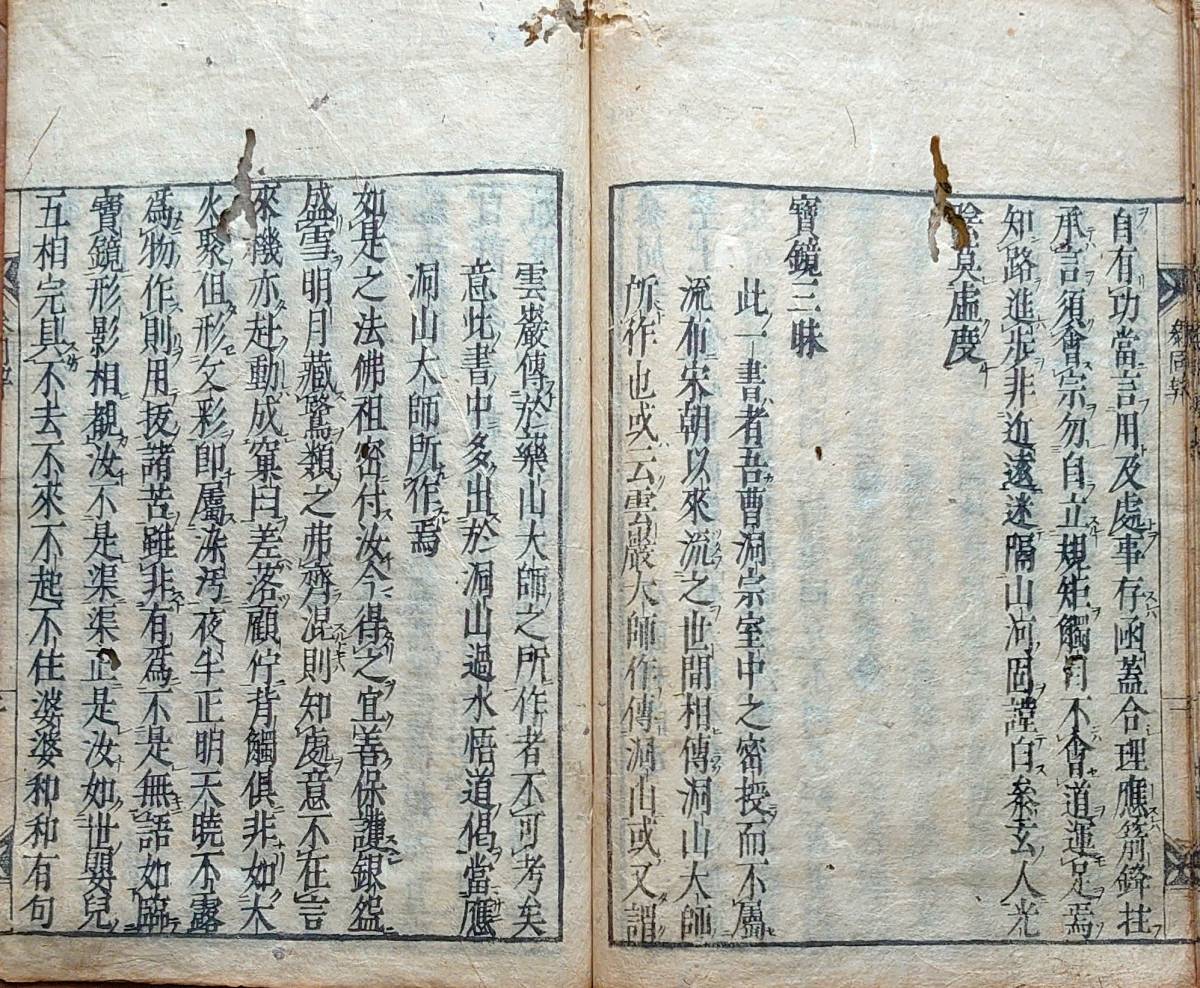 自有功當言用及處事存函蓋合理應箭鋒拄
承言須會宗勿自立規矩觸目不會道運足焉
知路進步非近遠迷隔山河固謹白參玄人光
陰莫虛度
寶鏡三昧
此一書者吾曹洞宗室中之密授而不屬
流布宋朝以來流之世間相傳洞山大師
所作也或云雲巖大師作傳洞山或又謂
雲巖傳於藥山大師之所作者不可考矣
意此書中多出於洞山過水悟道偈當應
洞山大師所作焉
如是之法佛祖密付汝今得之宜善保護銀盌
盛雪明月藏鷺類之弗齊混則知處意不在言
來機亦赴動成窠臼差落顧佇背觸俱非如大
火聚但形文彩即屬染汚夜半正明天曉不露
為物作則用拔諸苦雖非有為不是無語如臨
寶鏡形影相覩汝不是渠渠正是汝如世嬰兒
五相完具不去不來不起不住婆婆和和有句